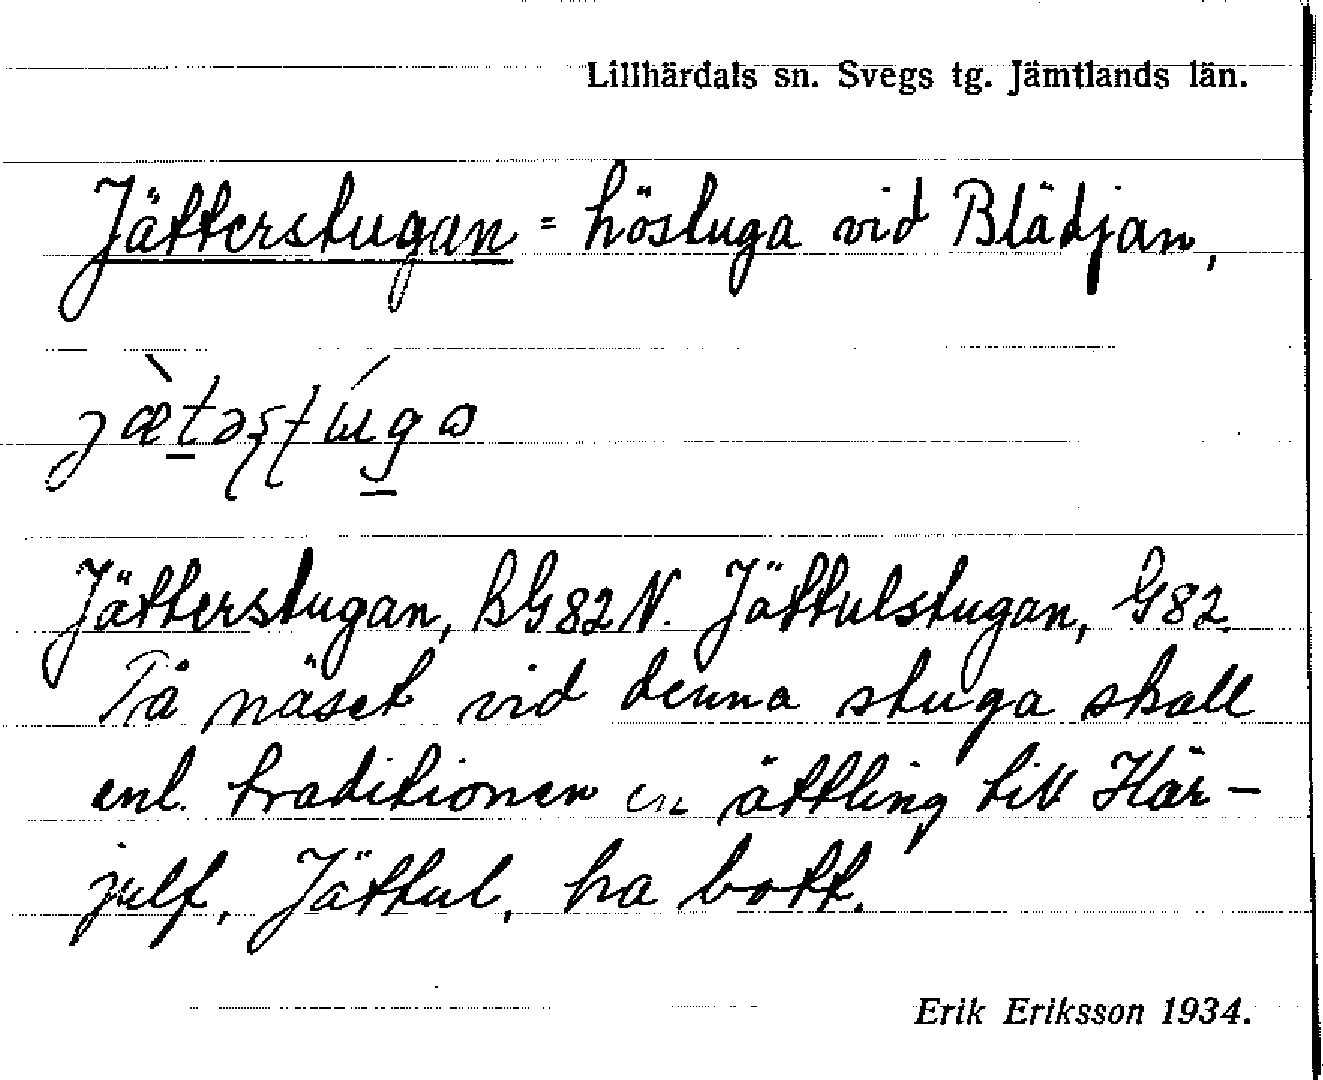 Lillhärdals sn. Svegs tg. Jämtlands län.
Jätterstugan = höstuga vid Blädjan,
Jätterstugan, BG82N. Jättulstugan, G82.
På näset vid denna stuga skall
enl. traditionen en ättling till Här-
julf, Jättul, ha bott.
Erik Eriksson 1934.